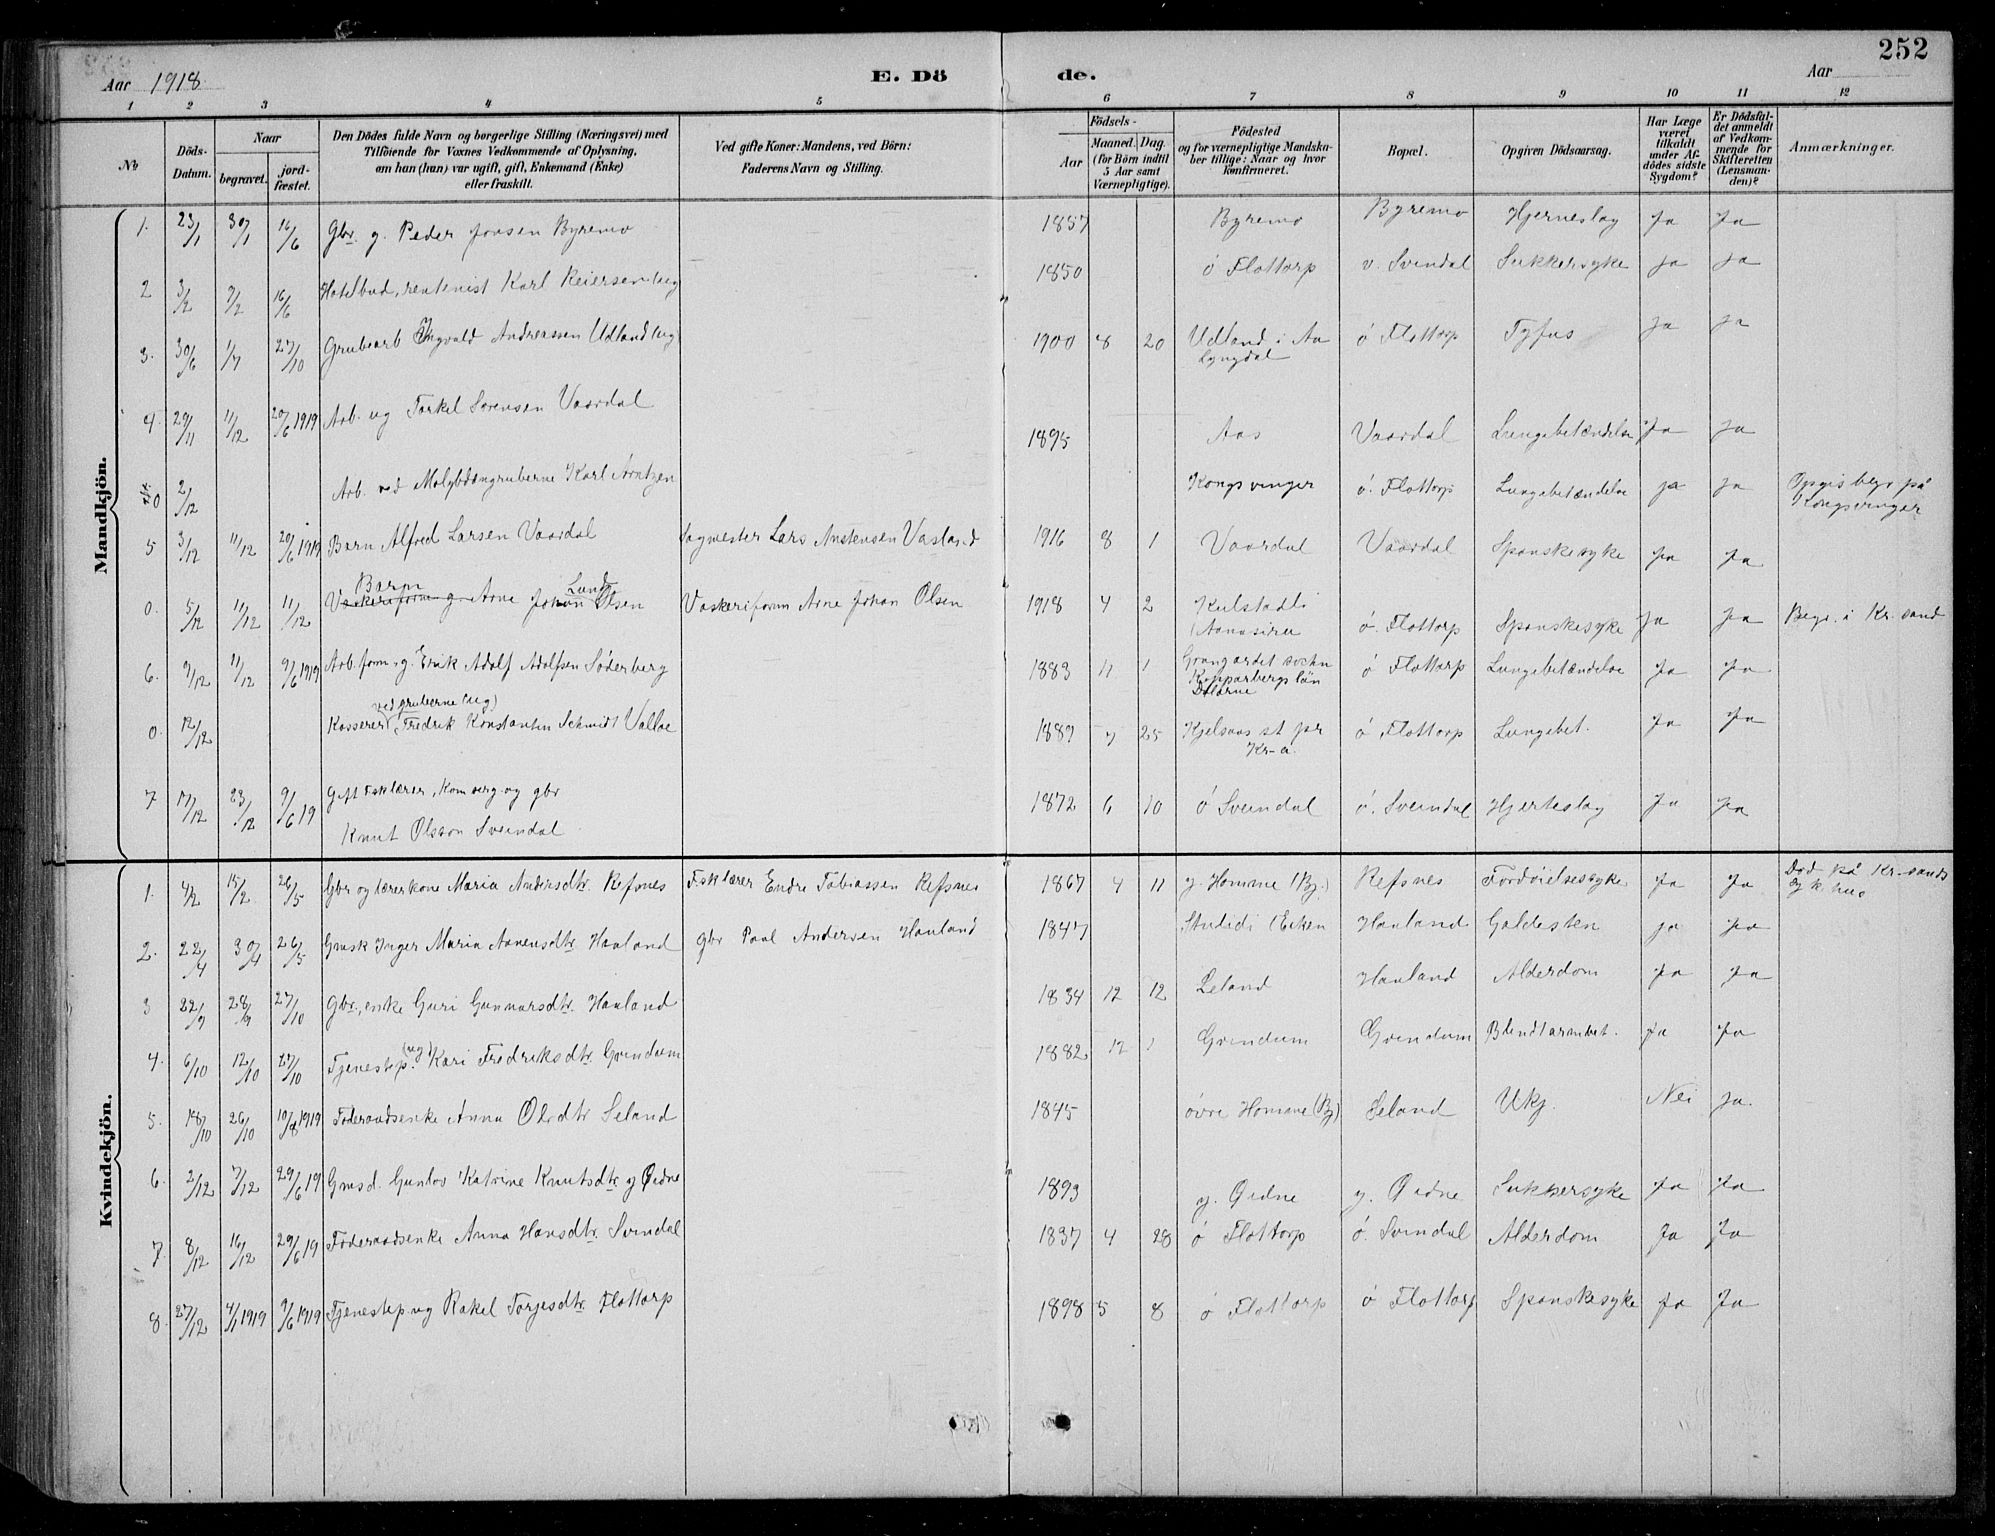 252
Aar 1918 E. Dö de. Aar
1 2 3 4 5 6 7 8 9 10 11 12
No
Döds-Datum.
Naar
begravet.
jordfæstet.
Den Dödes fulde Navn og borgerlige Stilling (Næringsvei) med
Tilföiende for Voxnes Vedkommende af Oplysning,
om han (hun) var ugift, gift, Enkemand (Enke)
eller fraskilt.
Ved gifte Koner: Mandens, ved Börn:
Faderens Navn og Stilling.
Födsels-
Aar
Maaned. Dag.
(for Börn indtil
5 Aar samt
Værnepligtige).
Födested
og for værnepligtige Mandskaber tillige: Naar og hvor
konfirmeret.
Bopæl.
Opgiven Dödsaarsag.
Har Læge
været
tilkaldt
under Afdödes sidste
Sygdom?
Er Dödsfaldet anmeldt
af Vedkommende for
Skifteretten
(Lensmanden)?
Anmærkninger.
Mandkjön.
1. 23/1 30/1 16/6 Gbr. g. Peder Jonsen Byremo 1857 Byremo Byremo Hjerneslag Ja Ja
2 3/2 9/2 16/6 Hotelbud, rentenist Karl Reiersen (ug 1850 ö Flottorp v. Svindal Sukkersyke Ja Ja
3. 30/6 1/7 27/10 Grubearb Ingvald Andreassen Udland (ug) 1900 8 20 Udland i Aa Lyngdal ö Flottorp Tyfus Ja Ja
4. 29/11 11/12 20/6 1919 Arb. ug Torkel Sørensen Vaardal 1895 Aas Vaardal Lungebetændelse Ja Ja
0 2/12 Arb. ved Molybdængruberne Karl Arntzen Kongsvinger ö. Flottorp Lungebetændelse Ja Ja Opgis begr på Kongsvinger
5 3/12 11/12 20/6 1919 Barn Alfred Larsen Vaardal Sagmester Lars Anstensen Vasland 1916 8 1 Vaardal Vaardal Spanskesyke Ja Ja
0. 5/12 11/12 11/12 Vaskeriform g. Barn Arne Johan Lund Olsen Vaskeriform Arne Johan Olsen 1918 4 2 Aanasira ö. Flottorp Spanskesyke Ja Ja Begr. i Kr.sand
6. 9/12 11/12 9/6 1919 Arb.form. g. Erik Adolf Adolfsen Søderberg 1883 11 1 Grangärdet sochn Kopparbergs län Dalarne ö Flottorp Lungebetændelse Ja Ja
0. 12/12 Kasserer ved gruberne (ug) Fredrik Konstantin Schmidt Valloe 1889 7 25 Kjelsaas st pr Kr-a. ö Flottorp Lungebet. Ja Ja
7 17/12 23/12 9/6 19 Gift Fsklærer, Komserg. og gbr Knut Olsson Sveindal 1872 6 10 ö Sveindal ö. Sveindal Hjerteslag Ja Ja
Kvindekjön.
1. 4/2 15/2 26/5 Gbr og lærerkone Maria Andersdtr. Refsnes Fsklærer Endre Tobiassen Refsnes 1867 4 11 y. Homme (Bj.) Refsnes Fordøielsessyke Ja Ja Død på Kr-sands sykhus
2. 22/4 30/4 26/5 Gmsk Inger Maria Aanensdtr Hauland gbr Paal Andersen Hauland 1847 Stulidi (Eiken Hauland Galdesten Ja Ja
3 22/9 28/9 27/10 Gbr., enke Guri Gunnarsdtr. Hauland 1834 12 12 Leland Hauland Alderdom Ja Ja
4. 6/10 12/10 27/10 Tjenestep. (ug) Kari Fredriksdtr. Grindum 1882 12 1 Grindum Grindum Blindtarmbet. Ja Ja
5. 18/10 26/10 10/8 1919 Føderaadsenke Anna Olsdtr Seland 1845 övre Homme (Bj) Seland Ukj. Nei Ja.
6. 2/12 7/12 29/6 19 Gmsd. Gunlov Katrine Knutsdtr y Øidne 1893 y. Øidne y. Øidne Sukkersyke Ja Ja
7. 8/12 16/12 29/6 19 Føderaadsenke Anna Hansdtr. Svindal 1837 4 28 ö Flottorp ö. Svindal Alderdom Ja Ja
8. 27/12 4/1 1919 9/6 1919 Tjenestep. ug Rakel Torjesdtr. Flottorp 1898 5 8 ö Flottorp ö Flottorp Spanskesyke Ja Ja